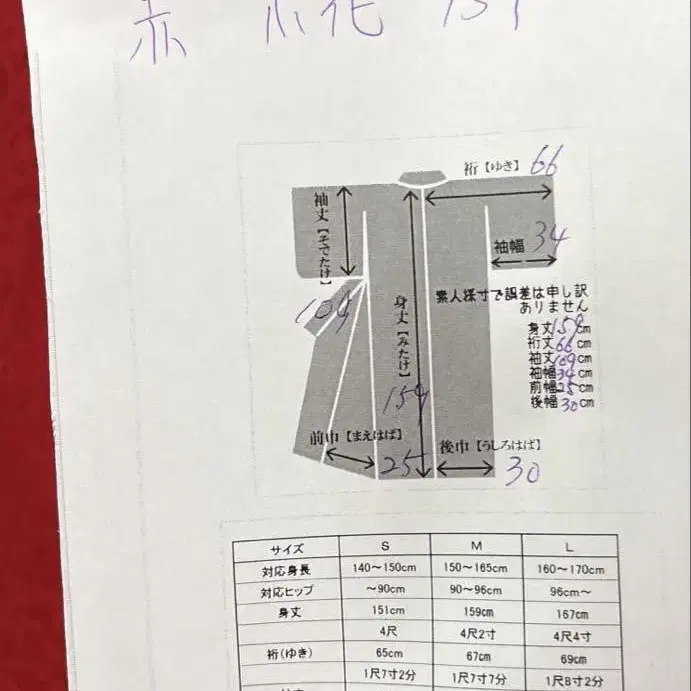 裄【ゆき】66
袖丈【そでたけ】
109
袖幅 34
身丈【みたけ】
159
素人採寸で誤差は申し訳
ありません
身丈159cm
裄丈66cm
袖丈109cm
袖幅34cm
前幅25cm
後幅30cm
前巾【まえはば】
25
後巾【うしろはば】
30
サイズ S M L
対応身長 140〜150cm 150〜165cm 160〜170cm
対応ヒップ 〜90cm 90〜96cm 96cm〜
身丈 151cm 159cm 167cm
4尺 4尺2寸 4尺4寸
裄(ゆき) 65cm 67cm 69cm
1尺7寸2分 1尺7寸7分 1尺8寸2分